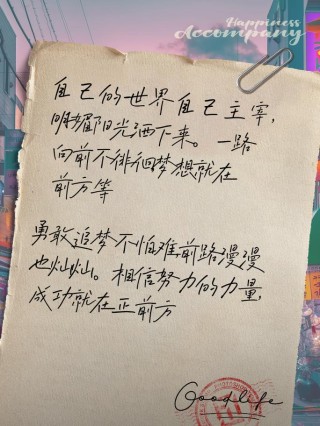 Happiness
Accompany
自己的世界自己主宰,
明媚阳光洒下来。一路
向前不徘徊梦想就在
前方等
勇敢追梦不怕难前路漫漫
也灿灿。相信努力的力量,
成功就在正前方
Goodlife